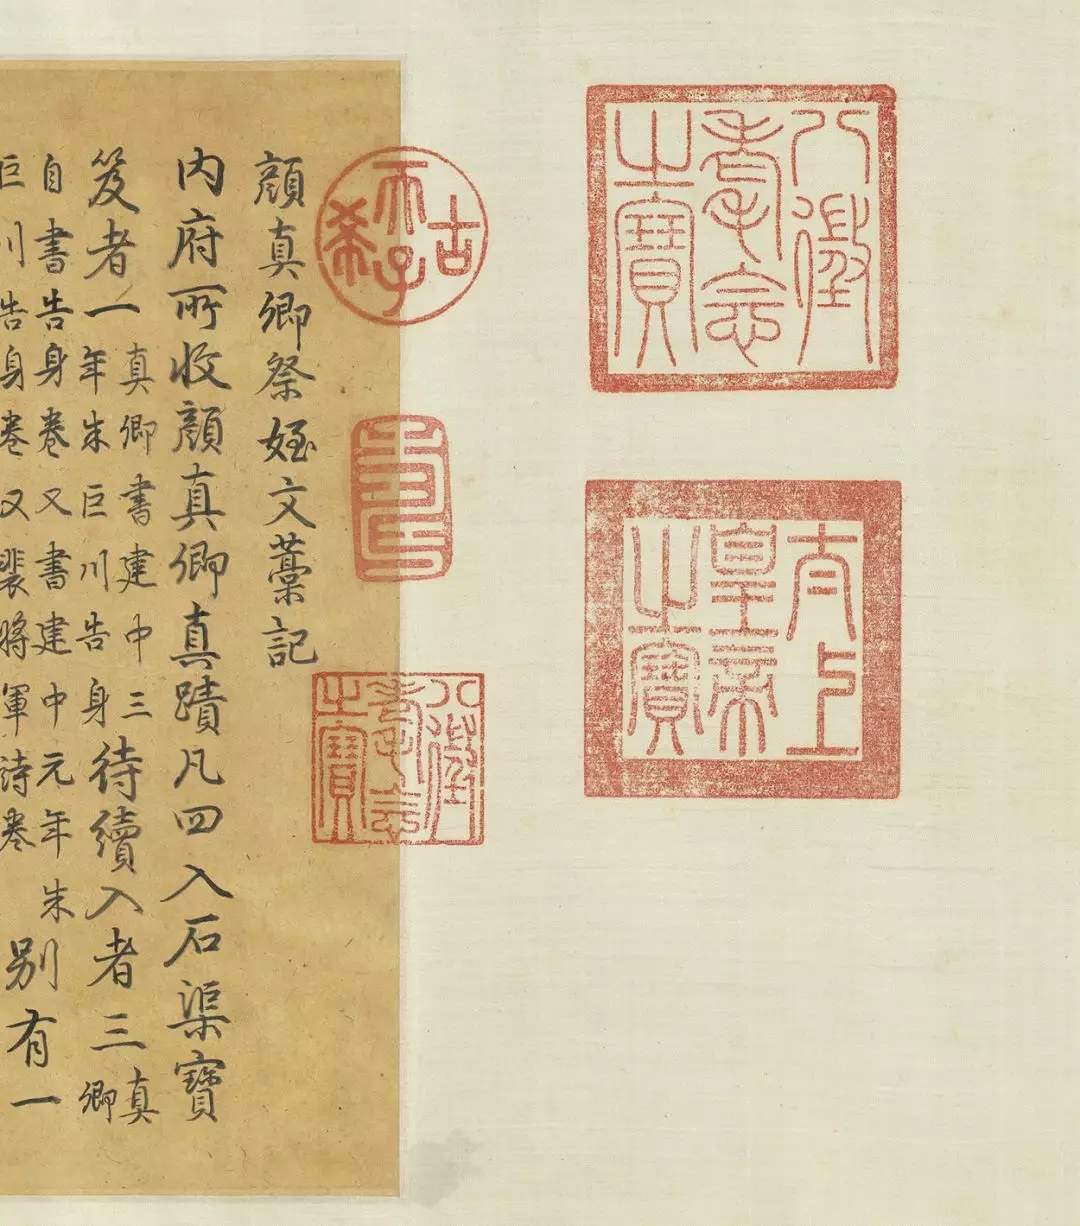 八徵耄念之寶
太上皇帝之寶
古希天子
壽
八徵耄念之寶
顏真卿祭姪文藁記
內府所收顏真卿真蹟凡四入石渠寶
笈者一真卿書建中三年朱巨川告身待續入者三真卿
自書告身卷又書建中元年朱巨川告身卷又裴將軍詩卷別有一